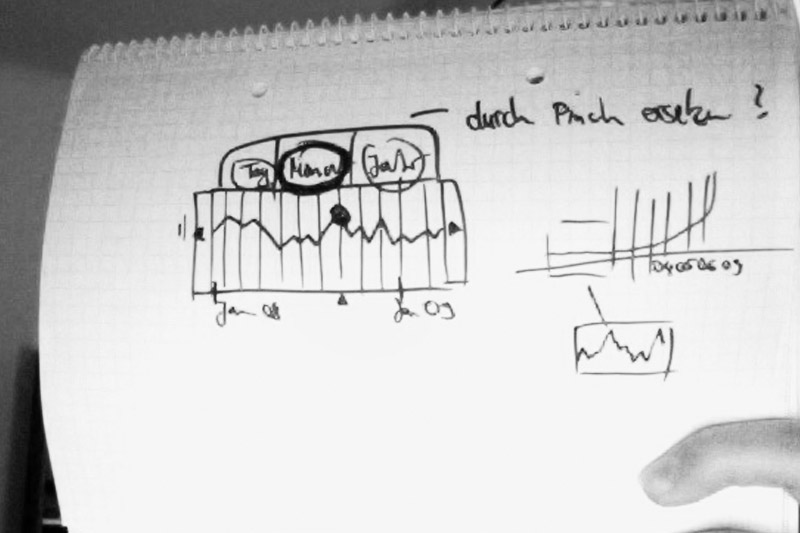 durch Pinch ersetzen ?
Tag Monat Jahr
Jan 08 Jan 09
04 05 06 09